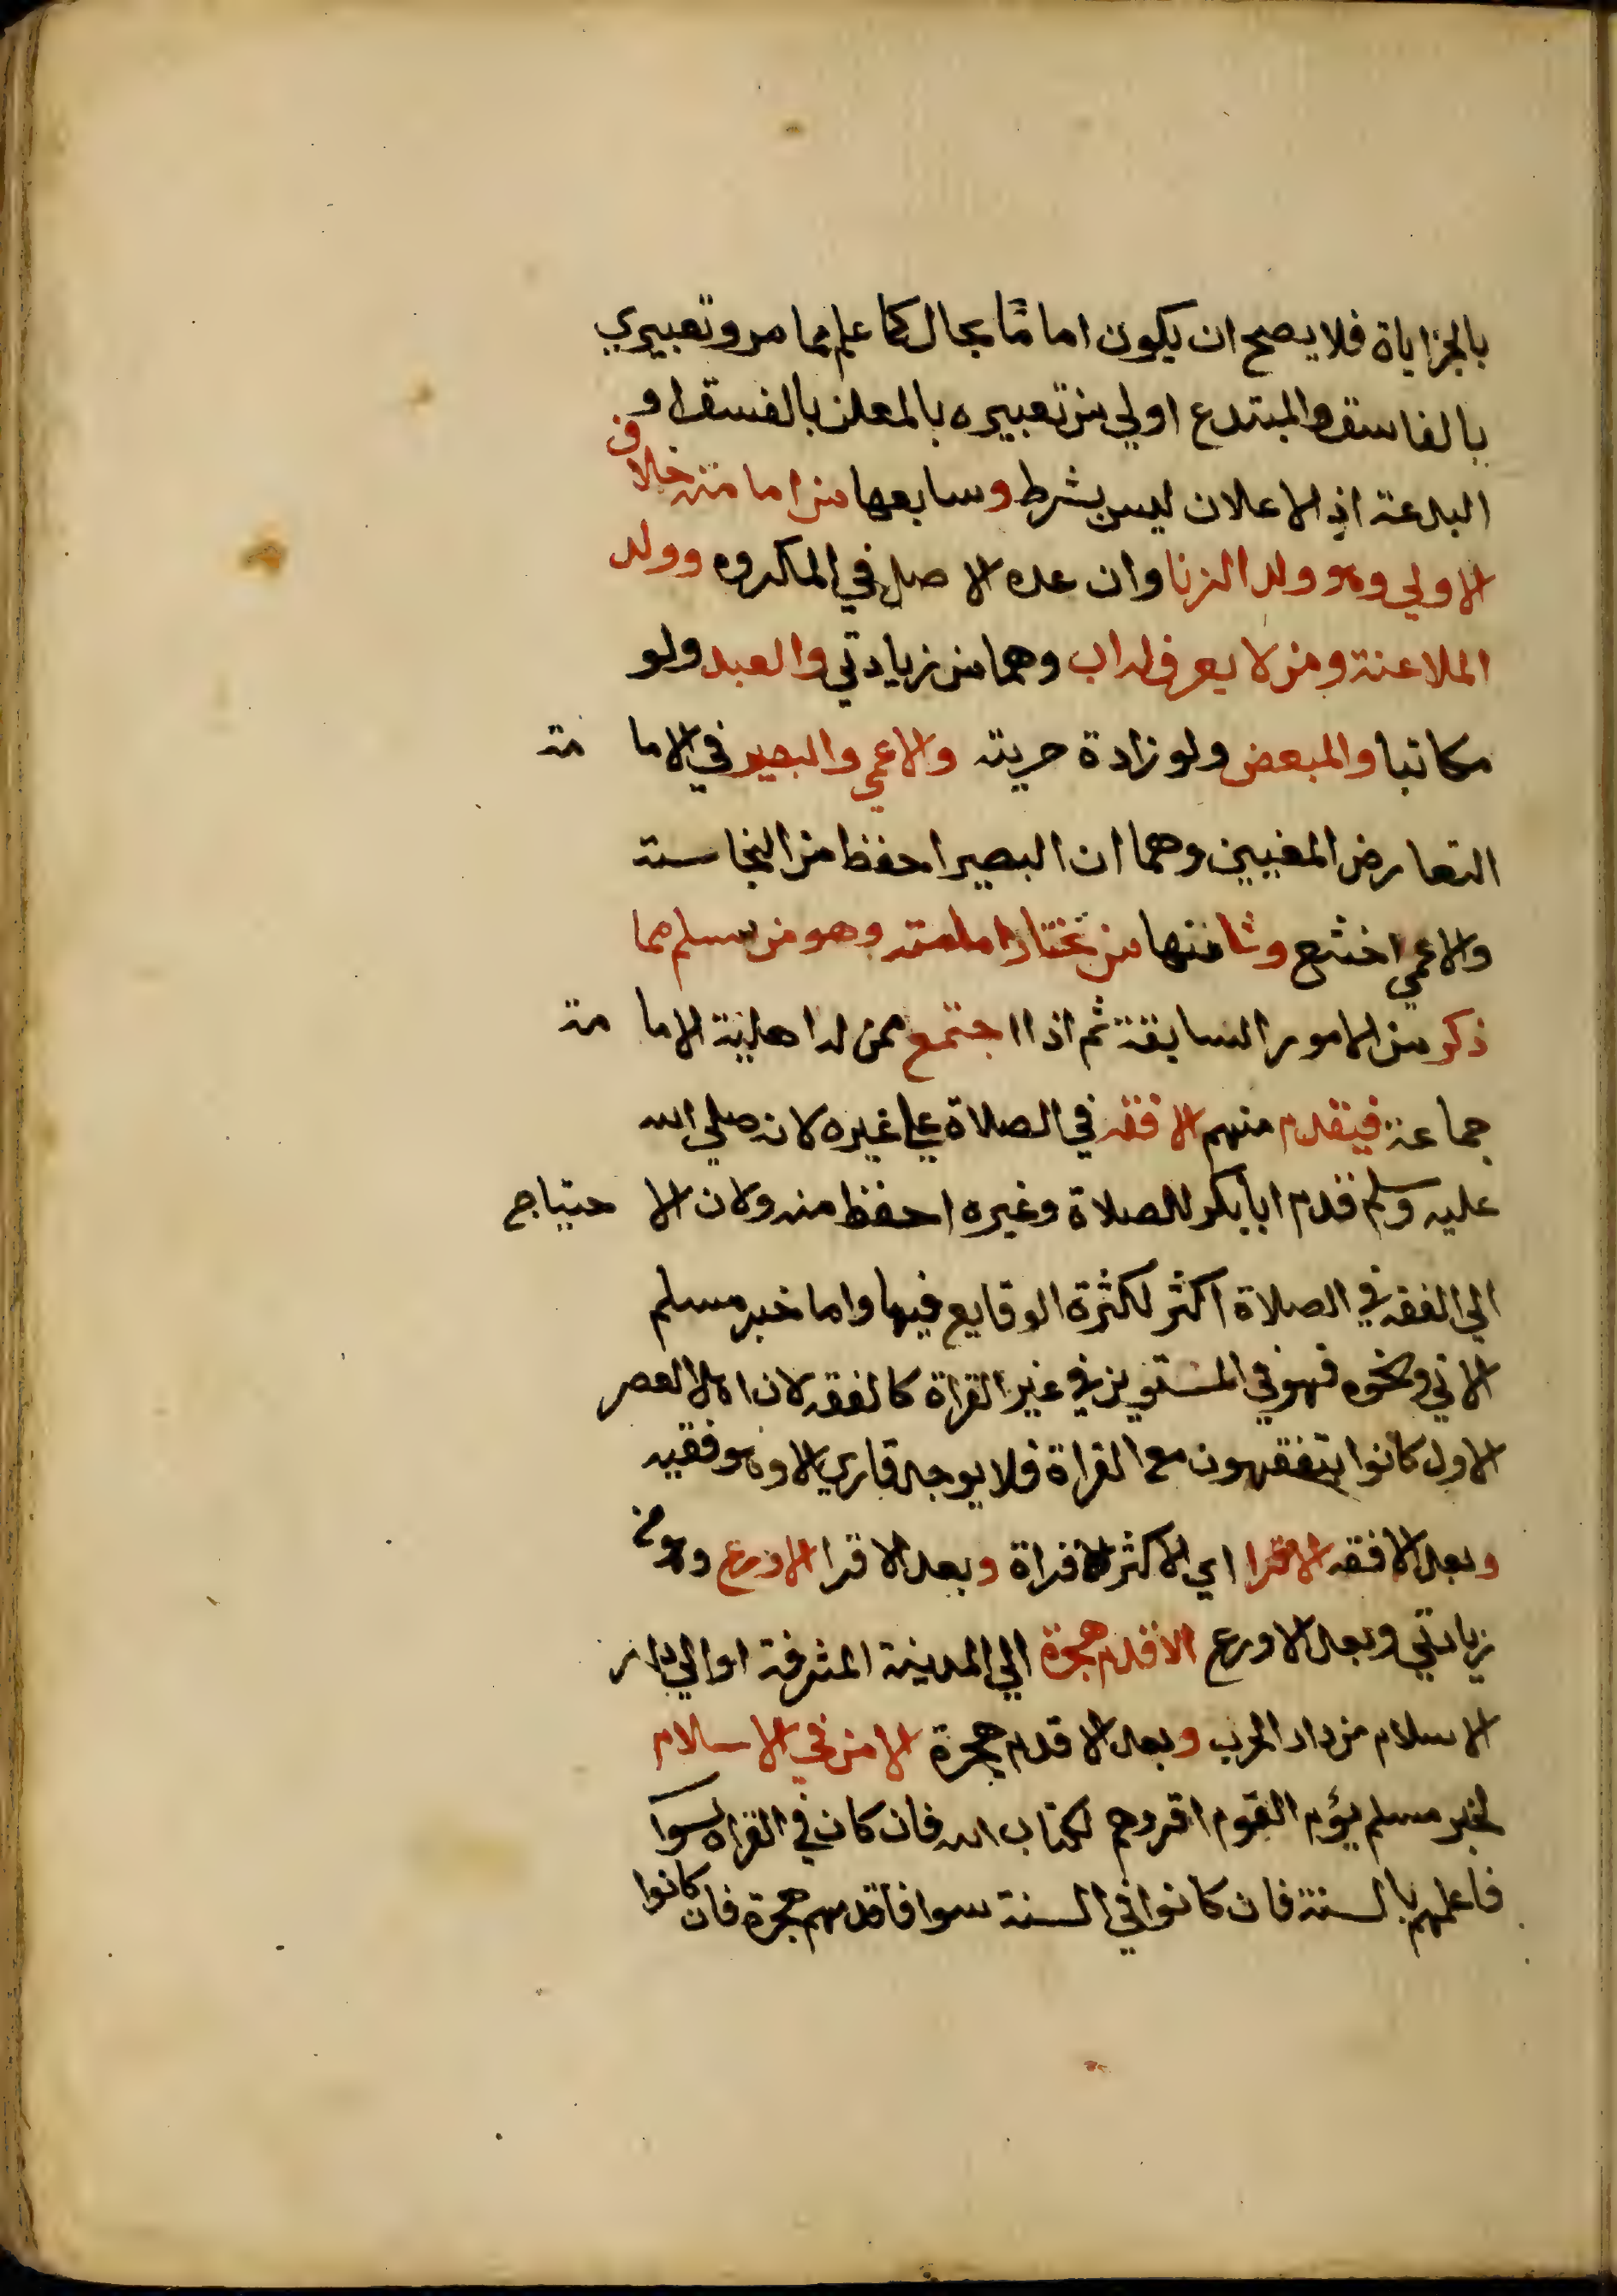 بالجزاياة فلا يصح ان يكون اماما بحال كما علم مما مر وتعبيري
بالفاسق والمبتدع اولي من تعبيره بالمعلن بالفسق او
البدعة اذ الاعلان ليس بشرط وسابعها من امامته خلاف
الاولي وهو ولد الزنا وان عده الاصل في المكروه وولد
الملاعنة ومن لا يعرف له اب وهما من زيادتي والعبد ولو
مكاتبا والمبعض ولو زادة حريته والاعمي والبصير في الاما مة
التعارض المغيين وهما ان البصير احفظ من النجاسة
والاعمي اخشع وثامنها من تختار امامته وهو من سلم مما
ذكر من الامور السابقة ثم اذا اجتمع ممن له اهلية الاما مة
جماعة فيقدم منهم الافقه في الصلاة علي غيره لانه صلي الله
عليه وسلم قدم ابا بكر للصلاة وغيره احفظ منه ولان الا حتياج
الي الفقه في الصلاة اكثر لكثرة الوقايع فيها واما خبر مسلم
الاتي ونحوه فهو في المستويين في غير القراة كالفقه لان اهل العصر
الاول كانوا يتفقهون مع القراة فلا يوجد قاري الا وهو فقيه
وبعد الافقه الاقرا اي الاكثر قراة وبعد الاقرا الاورع وهو من
زيادتي وبعد الاورع الاقدم هجرة الي المدينة المشرفة او الي دار
الاسلام من دار الحرب وبعد الاقدم هجرة الامن في الاسلام
لخبر مسلم يؤم القوم اقروهم لكتاب الله فان كان في القراة سوا
فاعلمهم بالسنة فان كانوا في السنة سوا فاقدمهم هجرة فان كانوا